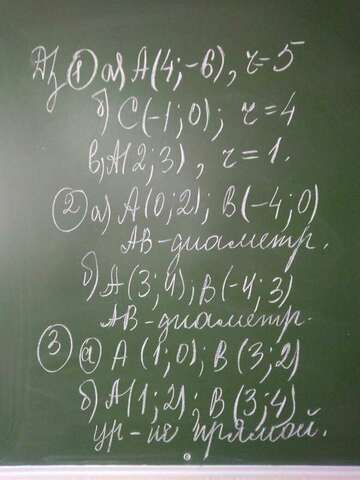 Дз ① а) A(4; -6), r=5
б) C(-1; 0); r=4
в) A(2; 3), r=1.
② а) A(0; 2); B(-4; 0)
AB - диаметр.
б) A(3; 4); B(-4; 3)
AB - диаметр.
③ а) A (1; 0); B(3; 2)
б) A(1; 2); B(3; 4)
ур-ие прямой.